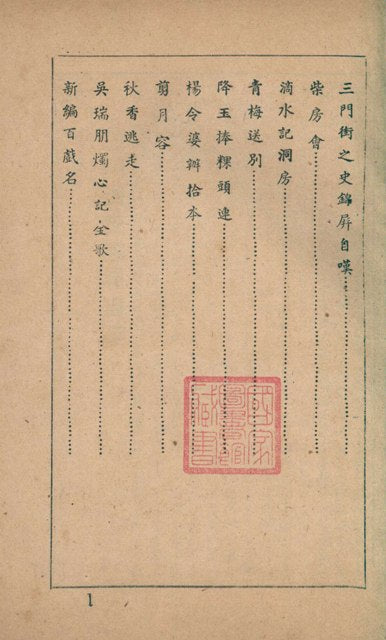 三門街之史錦屏自嘆
柴房會
滴水記洞房
青梅送別
降玉捧粿頭連
楊令婆辦拾本
剪月容
秋香逃走
吳瑞朋燭心記·全歌
新編百戲名
國家
圖書館
藏書
1